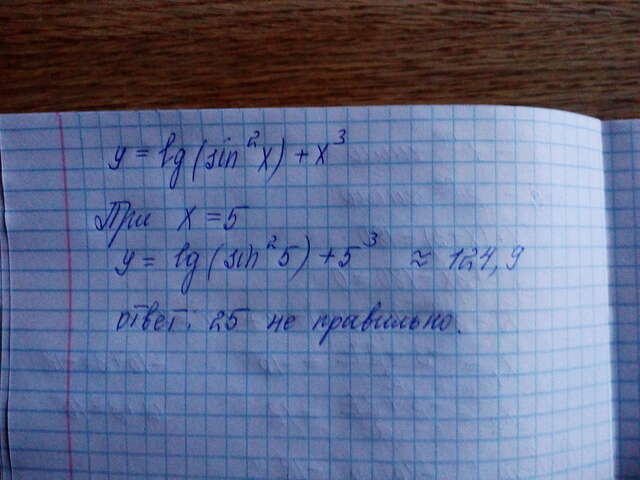 y = lg(sin²x) + x³
При x = 5
y = lg(sin²5) + 5³ ≈ 124,9
ответ: 25 не правильно.